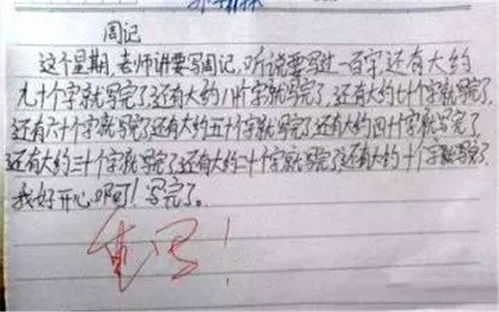 周记
这个星期,老师讲要写周记,听说要写过一百字,还有大约
九十个字就写完了,还有大约八十个字就写完了,还有大约七十个字就写完了,
还有六十个字就写完了还有大约五十个字就写完了,还有大约四十个字就写完了
还有大约三十个字就写完了还有大约二十个字就写完了还有大约十个字就写完了
我好开心啊!写完了。
重写!